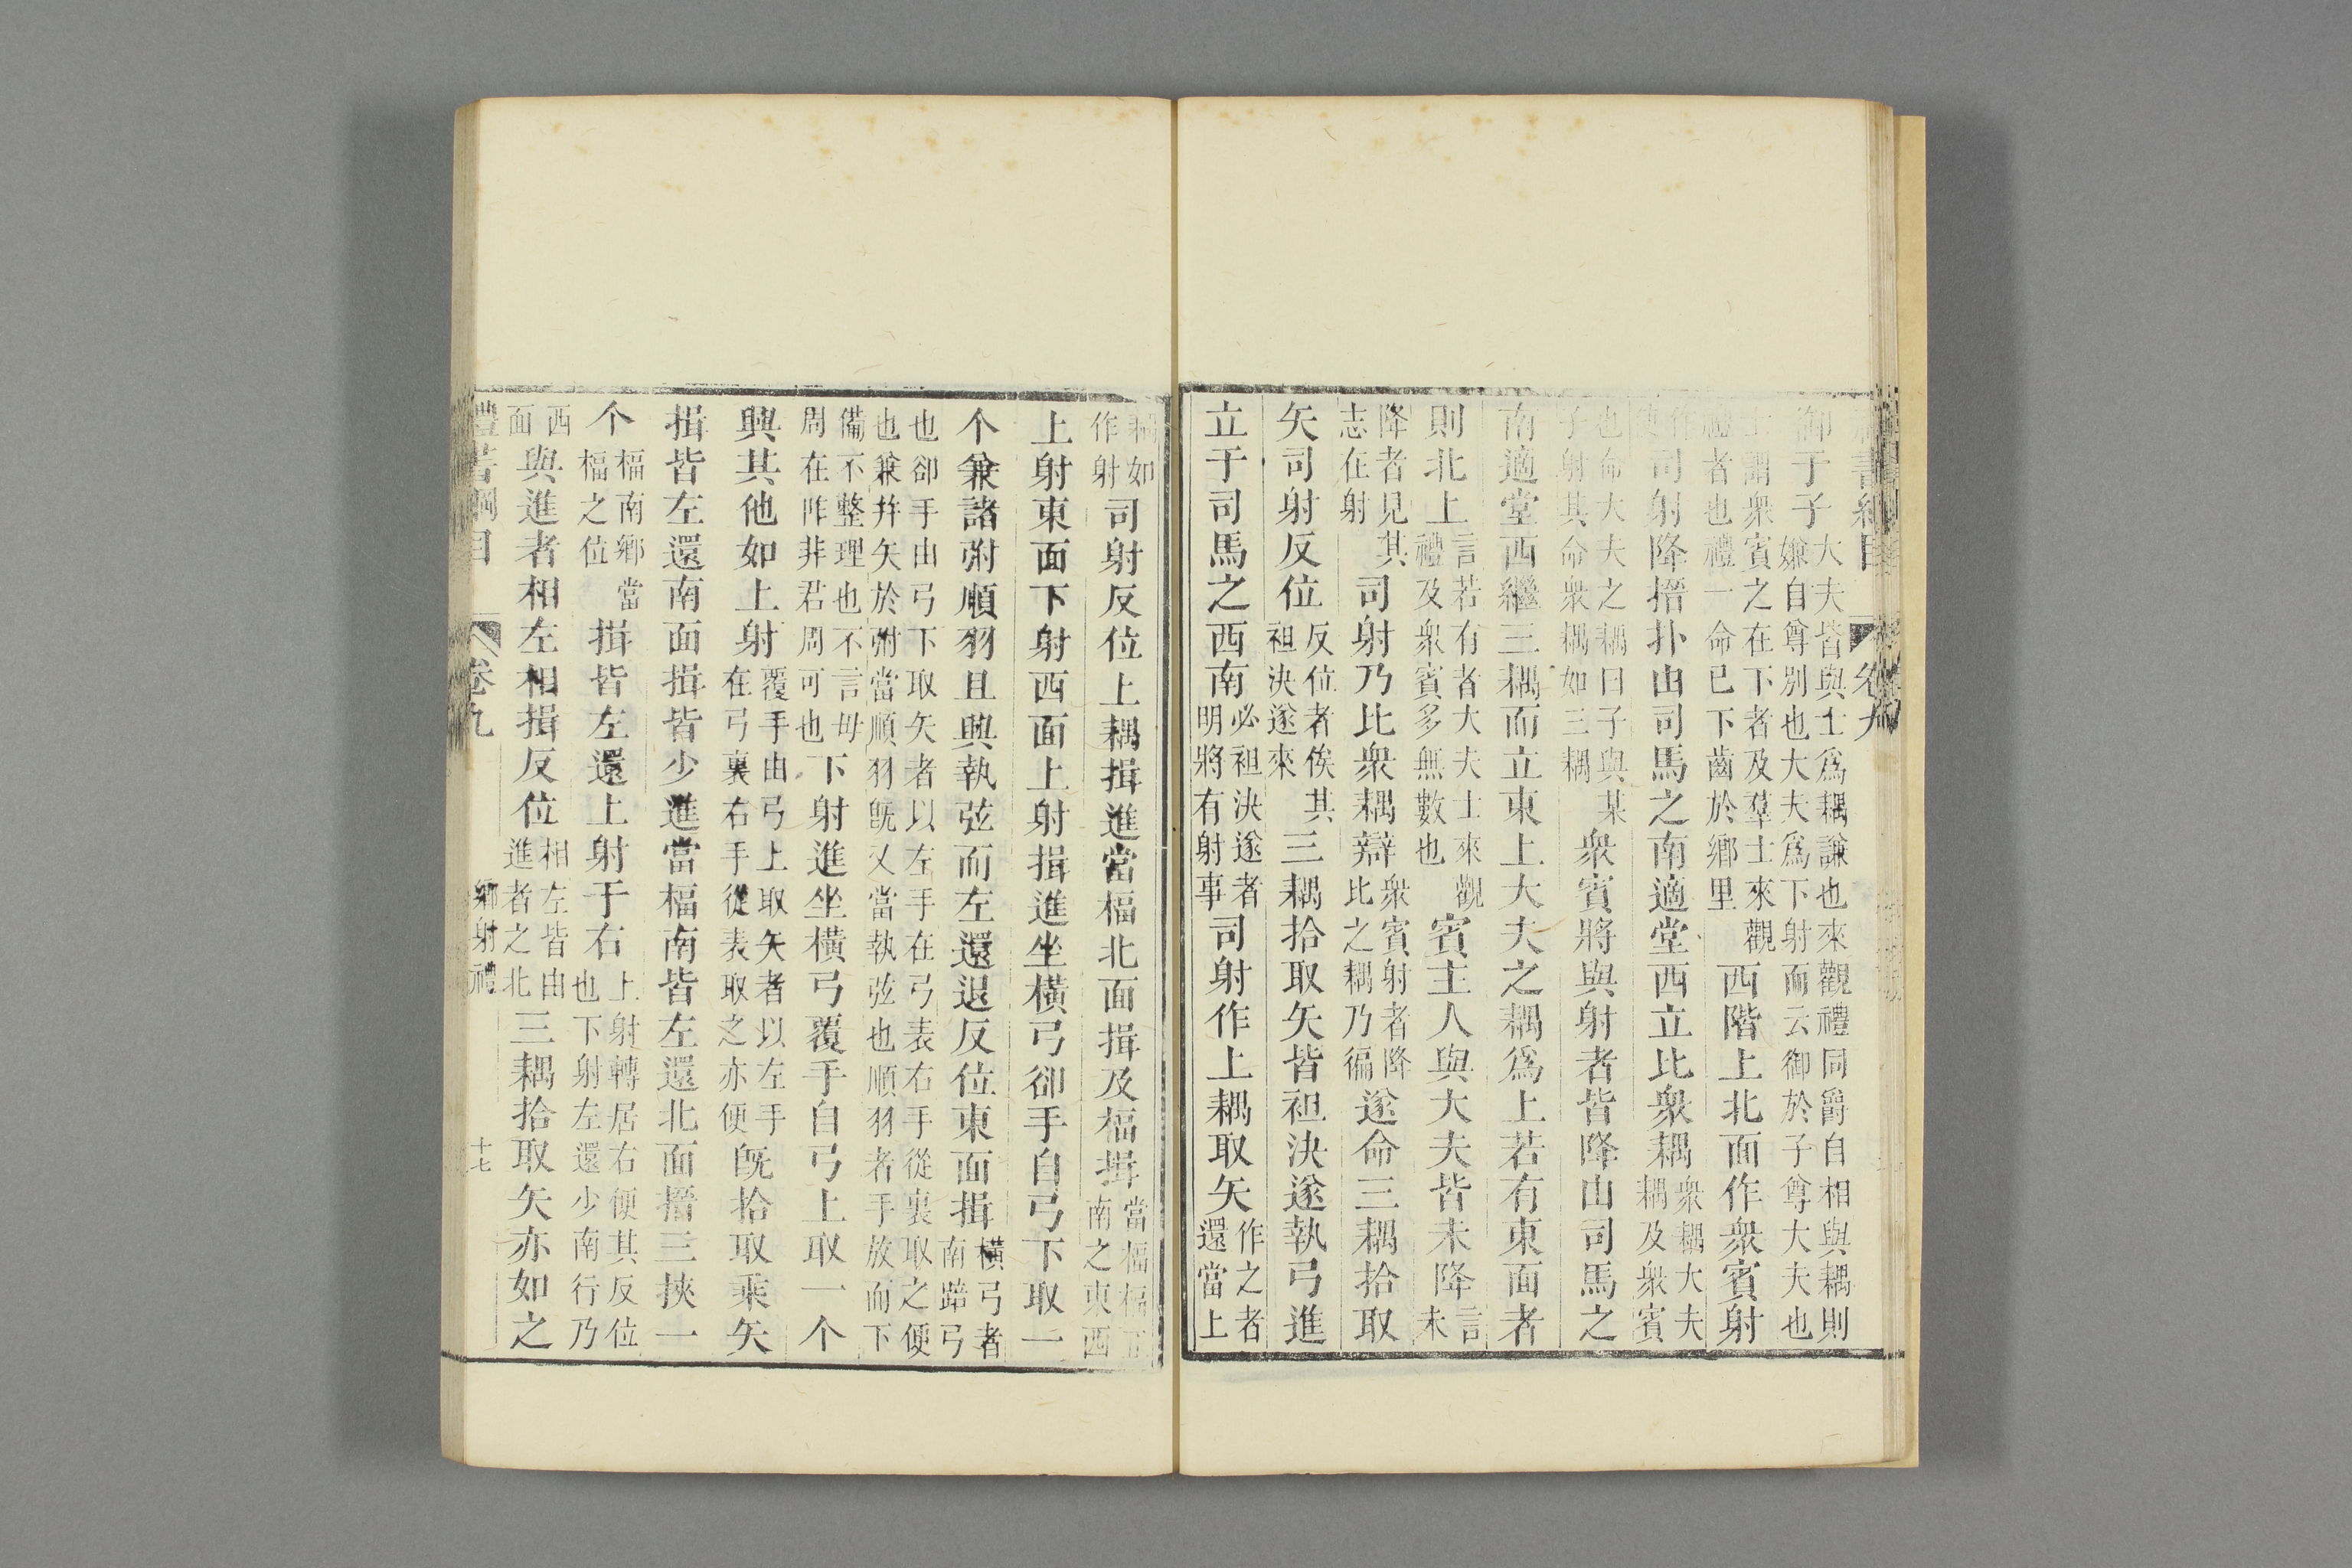 禮書綱目 卷九
御于子大夫皆與士爲耦謙也來觀禮同爵自相與耦則嫌自尊別也大夫爲下射而云御於子尊大夫也西階上北面作衆賓射
謂衆賓之在下者及羣士來觀禮者也禮一命已下齒於鄉里
司射降搢扑由司馬之南適堂西立比衆耦衆耦大夫耦及衆賓
也命大夫之耦曰子與某子射其命衆耦如三耦衆賓將與射者皆降由司馬之
南適堂西繼三耦而立東上大夫之耦爲上若有東面者
則北上言若有者大夫士來觀禮及衆賓多無數也賓主人與大夫皆未降言未
降者見其志在射司射乃比衆耦辯衆賓射者降比之耦乃徧遂命三耦拾取
矢司射反位反位者俟其袒決遂來三耦拾取矢皆袒決遂執弓進
立于司馬之西南必袒決遂者明將有射事司射作上耦取矢作之者還當上
耦如作射司射反位上耦揖進當楅北面揖及楅揖當楅楅正南之東西
上射東面下射西面上射揖進坐橫弓卻手自弓下取一
个兼諸弣順羽且興執弦而左還退反位東面揖橫弓者南踣弓
也卻手由弓下取矢者以左手在弓表右手從裏取之便也兼幷矢於弣當順羽旣又當執弦也順羽者手放而下
備不整理也不言毋周在阼非君周可也下射進坐橫弓覆手自弓上取一个
興其他如上射覆手由弓上取矢者以左手在弓裏右手從表取之亦便旣拾取乘矢
揖皆左還南面揖皆少進當楅南皆左還北面搢三挾一
个楅南鄉當楅之位揖皆左還上射于右上射轉居右便其反位也下射左還少南行乃
西面與進者相左相揖反位相左皆由進者之北三耦拾取矢亦如之
禮書綱目 卷九 鄉射禮 十七